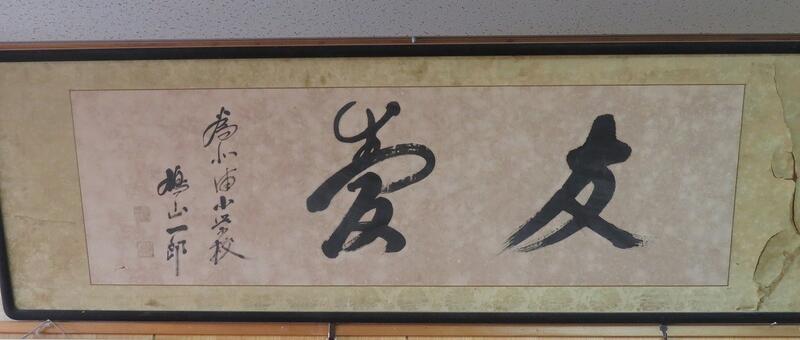 友愛
為北浦小学校
鳩山一郎